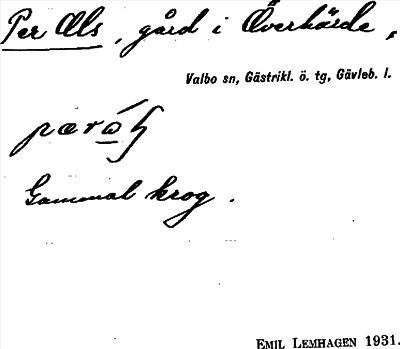 Per Ols, gård i Överhärde,
Valbo sn, Gästrikl. ö. tg, Gävleb. l.
Gammal krog.
EMIL LEMHAGEN 1931.